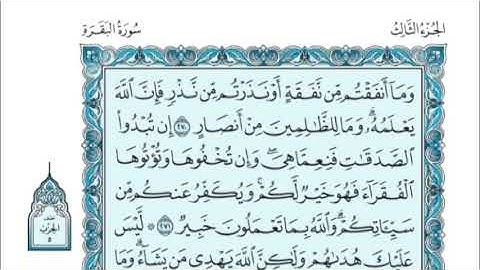 الجُزءُ الثَّالِثُ
سُورَةُ البَقَرَةِ
وَمَآ أَنفَقْتُم مِّن نَّفَقَةٍ أَوْ نَذَرْتُم مِّن نَّذْرٍ فَإِنَّ ٱللَّهَ
يَعْلَمُهُۥۗ وَمَا لِلظَّٰلِمِينَ مِنْ أَنصَارٍ ٢٧٠ إِن تُبْدُوا۟
ٱلصَّدَقَٰتِ فَنِعِمَّا هِىَۖ وَإِن تُخْفُوهَا وَتُؤْتُوهَا
ٱلْفُقَرَآءَ فَهُوَ خَيْرٌ لَّكُمْۚ وَيُكَفِّرُ عَنكُم مِّن
سَيِّـَٔاتِكُمْۗ وَٱللَّهُ بِمَا تَعْمَلُونَ خَبِيرٌ ٢٧١ لَّيْسَ
عَلَيْكَ هُدَىٰهُمْ وَلَٰكِنَّ ٱللَّهَ يَهْدِى مَن يَشَآءُۗ وَمَا
نصف
الحزب
٥